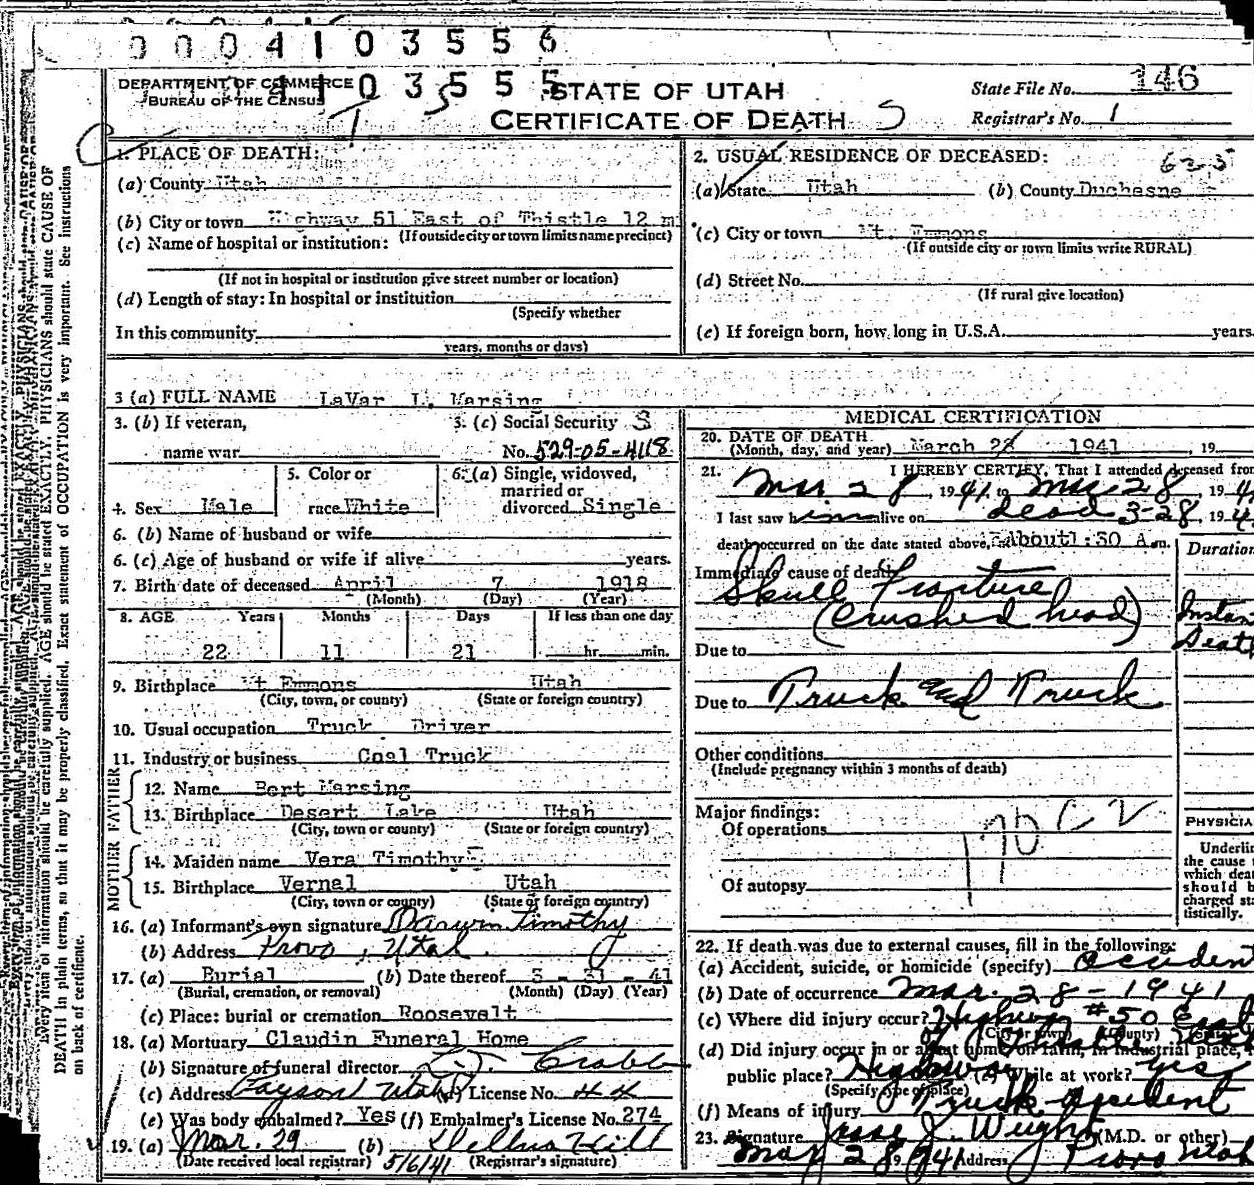 0 0 0 4 1 0 3 5 5 6
DEPARTMENT OF COMMERCE
BUREAU OF THE CENSUS
4 1 0 3 5 5 5
STATE OF UTAH
CERTIFICATE OF DEATH
State File No. 146
Registrar's No. 1
1. PLACE OF DEATH:
(a) County Utah
(b) City or town Highway 51 East of Thistle 12 m
(If outside city or town limits name precinct)
(c) Name of hospital or institution:
(If not in hospital or institution give street number or location)
(d) Length of stay: In hospital or institution
(Specify whether
In this community
years, months or days)
2. USUAL RESIDENCE OF DECEASED:
635
(a) State Utah (b) County Duchesne
(c) City or town Mt. Emmons
(If outside city or town limits write RURAL)
(d) Street No.
(If rural give location)
(e) If foreign born, how long in U.S.A. years.
3 (a) FULL NAME LaVar L. Marsing
3. (b) If veteran,
name war
3. (c) Social Security
No. 529-05-4118
4. Sex Male
5. Color or
race White
6. (a) Single, widowed,
married or
divorced Single
6. (b) Name of husband or wife
6. (c) Age of husband or wife if alive years.
7. Birth date of deceased April 7 1918
(Month) (Day) (Year)
8. AGE Years Months Days If less than one day
22 11 21 hr. min.
9. Birthplace Mt Emmons Utah
(City, town, or county) (State or foreign country)
10. Usual occupation Truck Driver
11. Industry or business Coal Truck
FATHER
12. Name Bert Marsing
13. Birthplace Desert Lake Utah
(City, town or county) (State or foreign country)
MOTHER
14. Maiden name Vera Timothy
15. Birthplace Vernal Utah
(City, town or county) (State or foreign country)
16. (a) Informant's own signature Darwin Timothy
(b) Address Provo, Utah
17. (a) Burial (b) Date thereof 3 - 31 - 41
(Burial, cremation, or removal) (Month) (Day) (Year)
(c) Place: burial or cremation Roosevelt
18. (a) Mortuary Claudin Funeral Home
(b) Signature of funeral director
(c) Address Payson Utah (d) License No. 44
(e) Was body embalmed? Yes (f) Embalmer's License No. 274
19. (a) Mar. 29 (b) Dellas Hill
(Date received local registrar) 5/6/41 (Registrar's signature)
MEDICAL CERTIFICATION
20. DATE OF DEATH
(Month, day, and year) March 28 1941, 19
21. I HEREBY CERTIFY, That I attended deceased from
Mar. 28, 1941 to Mar 28, 194
I last saw him alive on dead 3-28, 194
death occurred on the date stated above, About 1:30 A.m.
Duration
Immediate cause of death
Skull Fracture
(Crushed head)
Instan
Death
Due to
Due to Truck and Truck
Other conditions
(Include pregnancy within 3 months of death)
Major findings:
Of operations
170 C V
Of autopsy
PHYSICIA
Underlin
the cause
which deat
should b
charged sta
tistically.
22. If death was due to external causes, fill in the following:
(a) Accident, suicide, or homicide (specify) Accident
(b) Date of occurrence Mar. 28-1941
(c) Where did injury occur? Highway #50 East
of Thistle Utah
(d) Did injury occur in or about home, on farm, in industrial place,
public place? Highway (e) While at work? yes
(Specify type of place)
(f) Means of injury Truck accident
23. Signature Jesse J. Weight (M.D. or other)
Mar 28 1941 Address Provo Utah
Every item of information should be carefully supplied. AGE should be stated EXACTLY. PHYSICIANS should state CAUSE OF
DEATH in plain terms, so that it may be properly classified. Exact statement of OCCUPATION is very important. See instructions
on back of certificate.